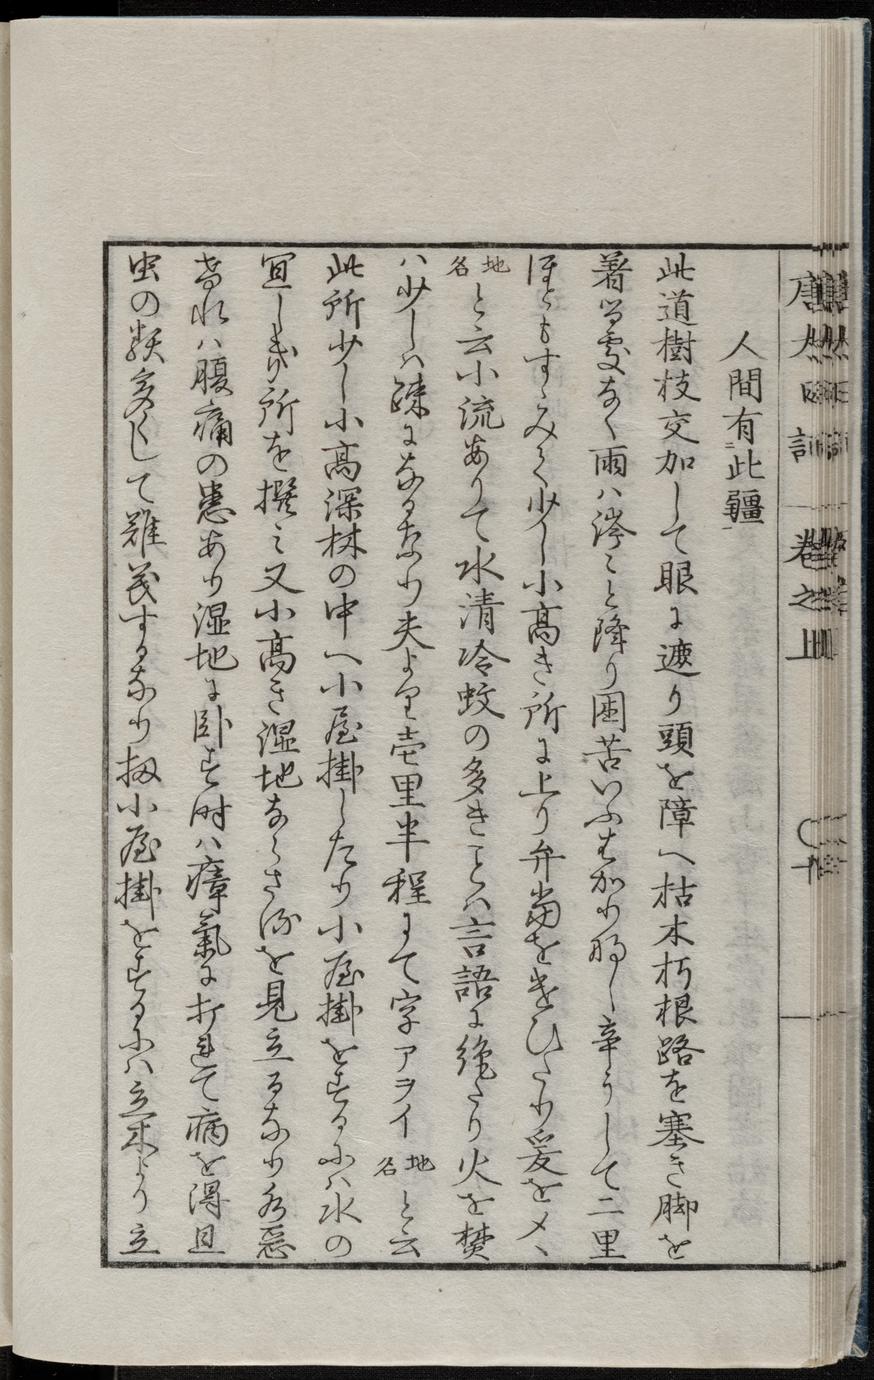 唐太日記 卷之上 ○十
人間有此疆
此道樹枝交加して眼に遮り頭を障へ枯木朽根路を塞き脚を
著る處なく雨ハ滂〻と降り困苦いふはかりなし辛うして二里
ほともすゝみて少し小高き所に上り弁當を遣ひたり爰をメヽ
地名と云小流ありて水清冷蚊の多きことハ言語に絶たり火を焚
ハ少しハ疎になるなり夫より壱里半程にて字アライ地名と云
此所少し小高深林の中へ小屋掛したり小屋掛をするにハ水の
宜しき所を撰ミ又小高き湿地ならさるを見立るなり水惡
けれハ腹痛の患あり湿地に臥す時ハ瘴氣に打れて病を得且
虫の類多くして難義するなり扨小屋掛をするにハ立木より立